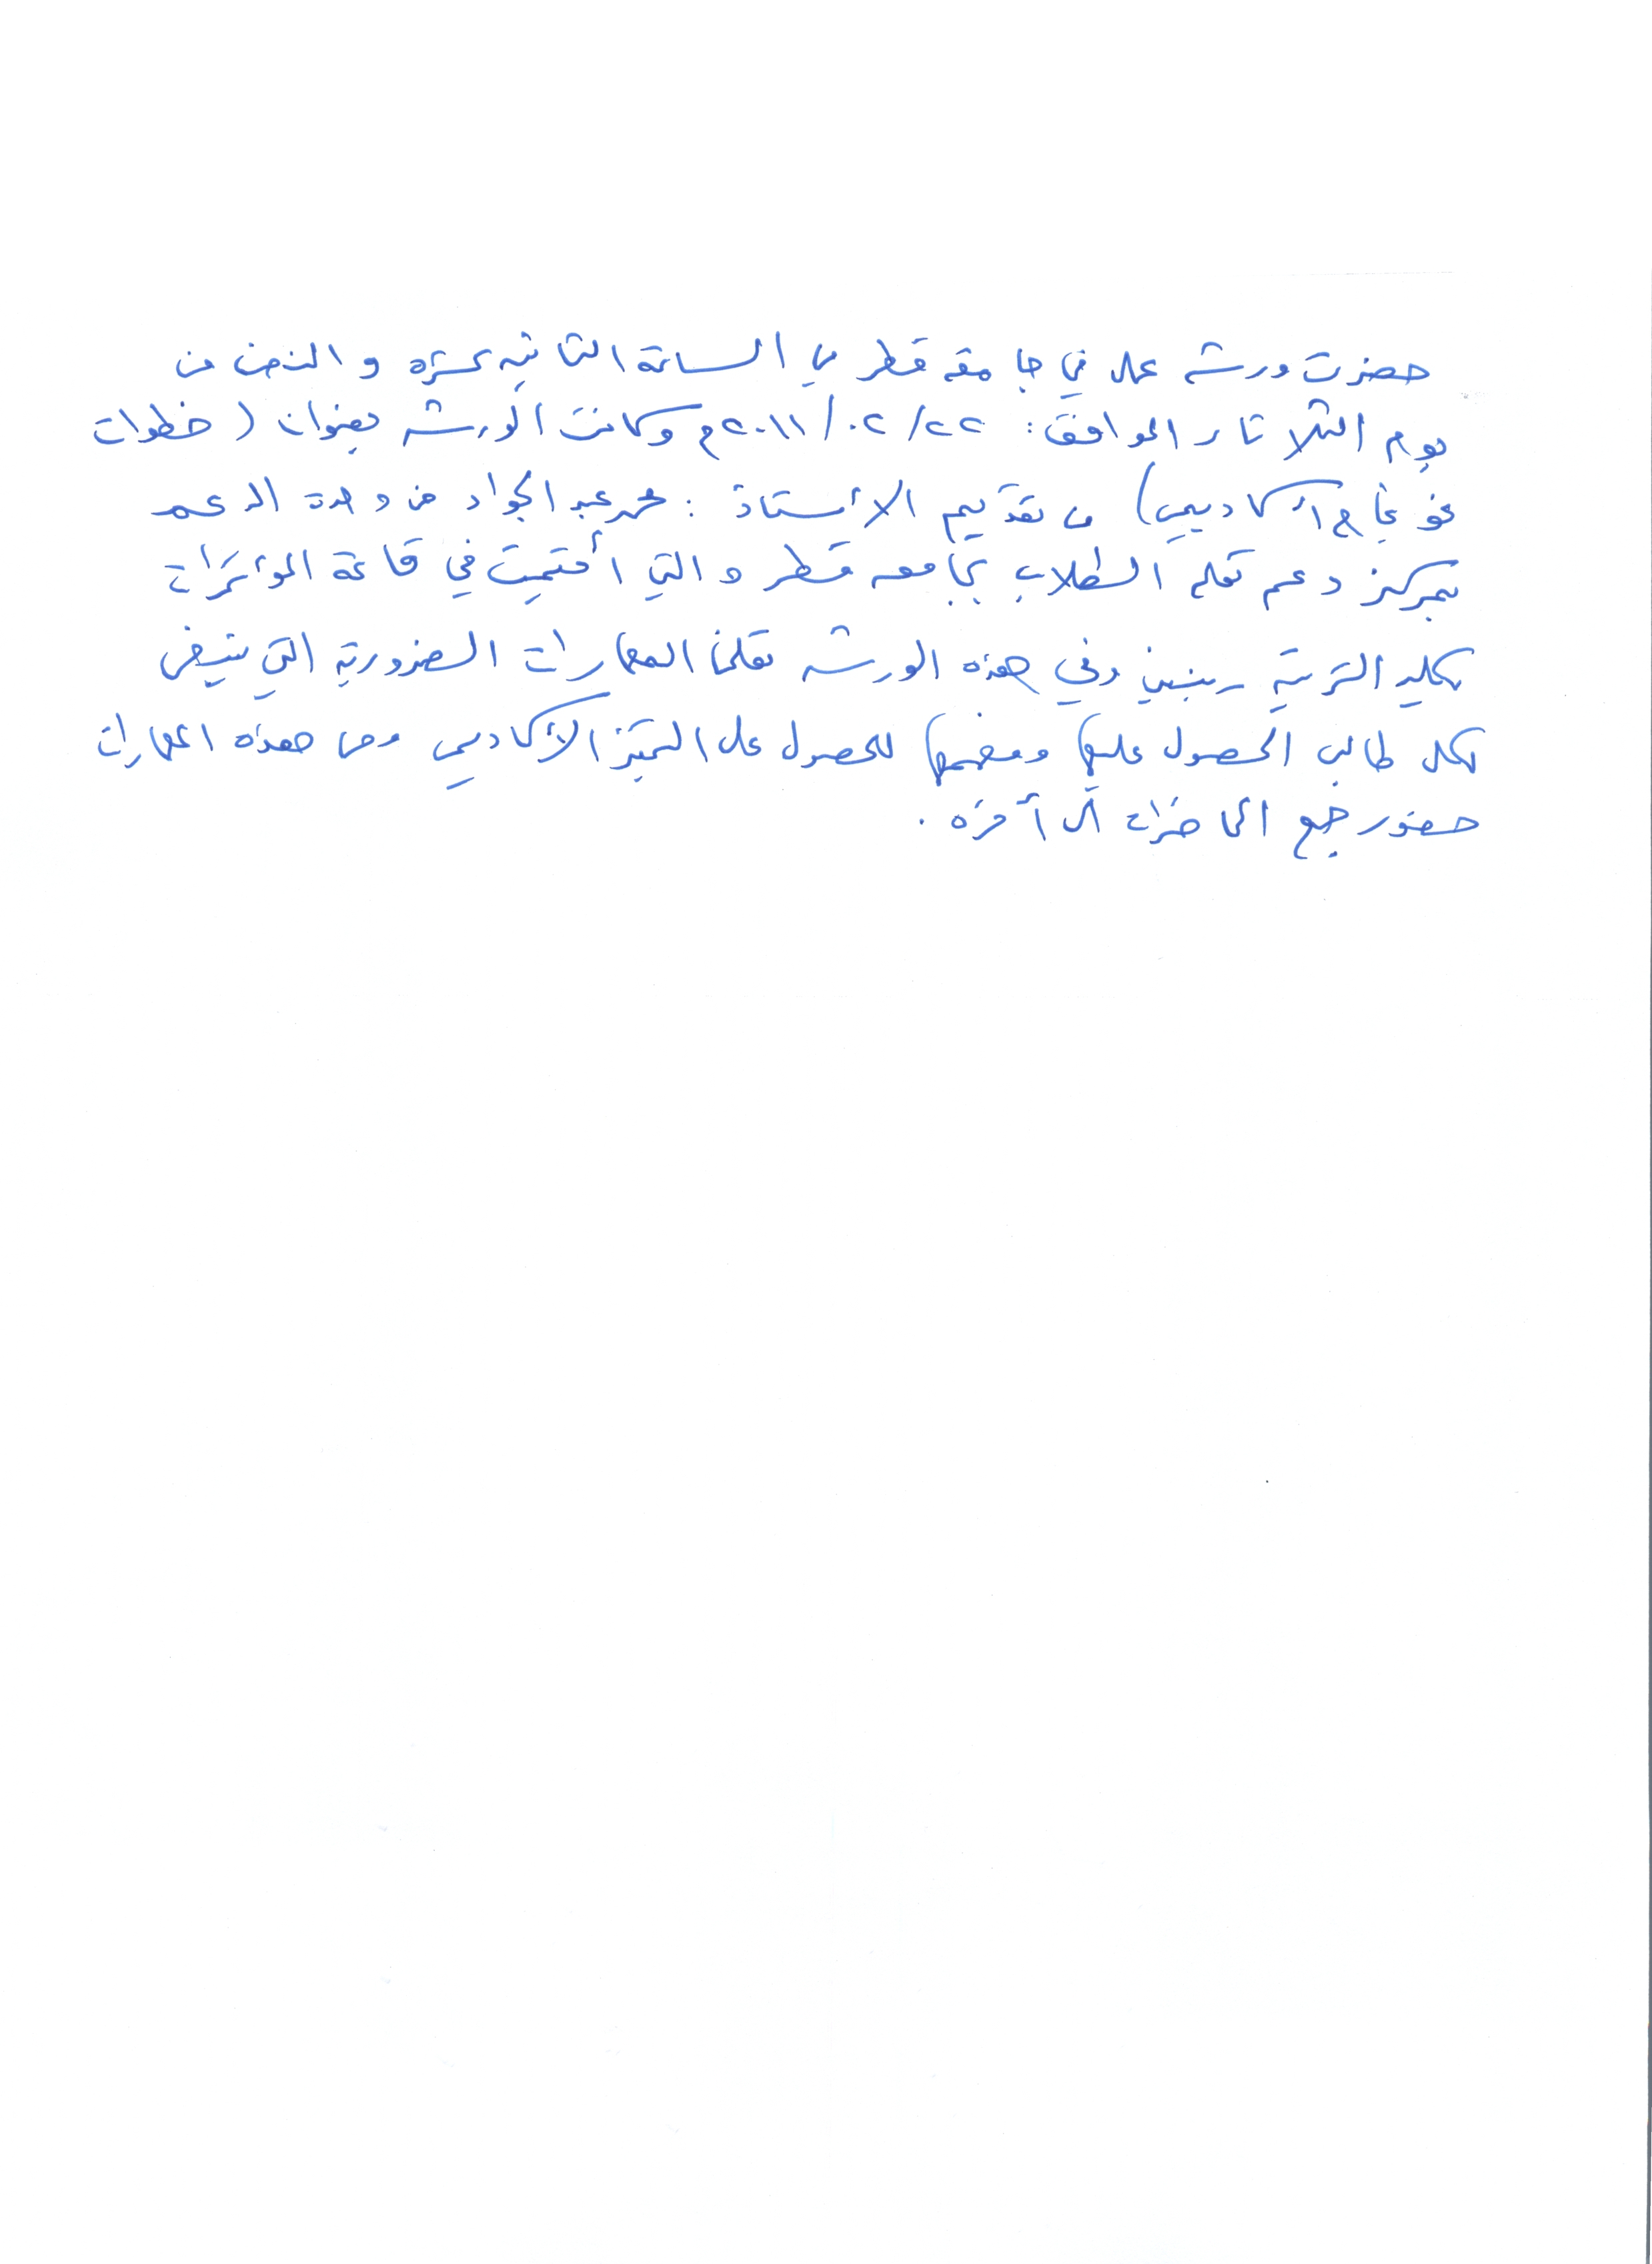 حضرت ورشه عمل في جامعة قطر في الساعة الثانيه عشره والنصف من
يوم الثلاثاء الموافق: ٢٢/٠٢/٢٠١١م وكانت الورشه بعنوان (خطوات
نحو نجاح أكاديمي) من تقديم الأستاذ: محمد عبد الجواد من وحدة الدعم
بمركز دعم تعلم الطلاب بجامعه قطر والتي أقيمت في قاعة المؤتمرات
بكليه التربية بنين وفي هذه الورشه تعلمنا المهارات الضرورية التي ينبغي
لكل طالب الحصول عليها وفهمها للحصول على التميز الأكاديمي ومن هذه المهارات
حضور جميع المحاضرات الى أخره .